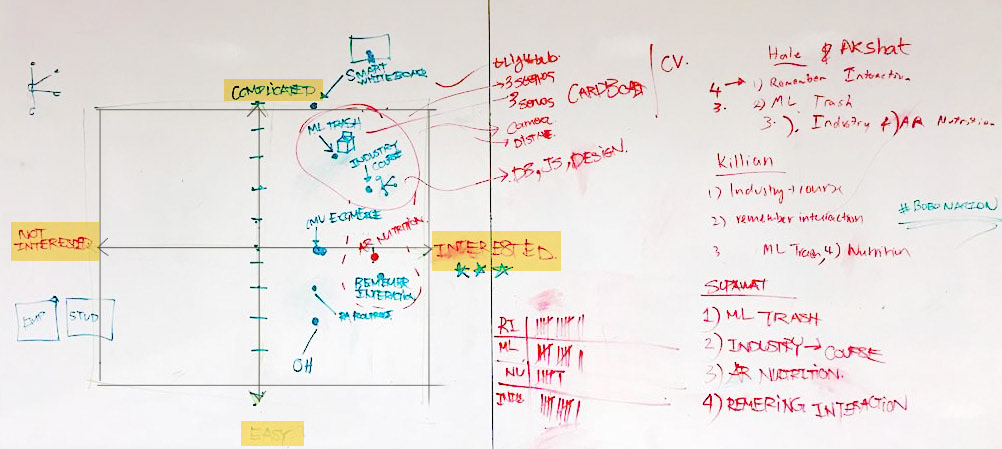 SMART WHITEBOARD
COMPLICATED
ML TRASH
INDUSTRY COURSE
CMU
AR NUTRITION
NOT INTERESTED
INTERESTED.
REMEMBER INTERATION
STUD
OH
EASY
3 servos
3 servos
CARDBOARD
CV.
Camera
DB, JS, DESIGN.
RI
ML
NU
Hale & Akshat
4 → 1) Remember Interaction
3. 2) ML Trash
3.), Industry 4) AR Nutrition
Killian
1) Industry → course
2) remember interaction
3 ML Trash, 4) Nutrition
#BOBONATION
SUPAWAT
1) ML TRASH
2) INDUSTRY → COURSE
3) AR NUTRITION.
4) REMERING INTERACTION